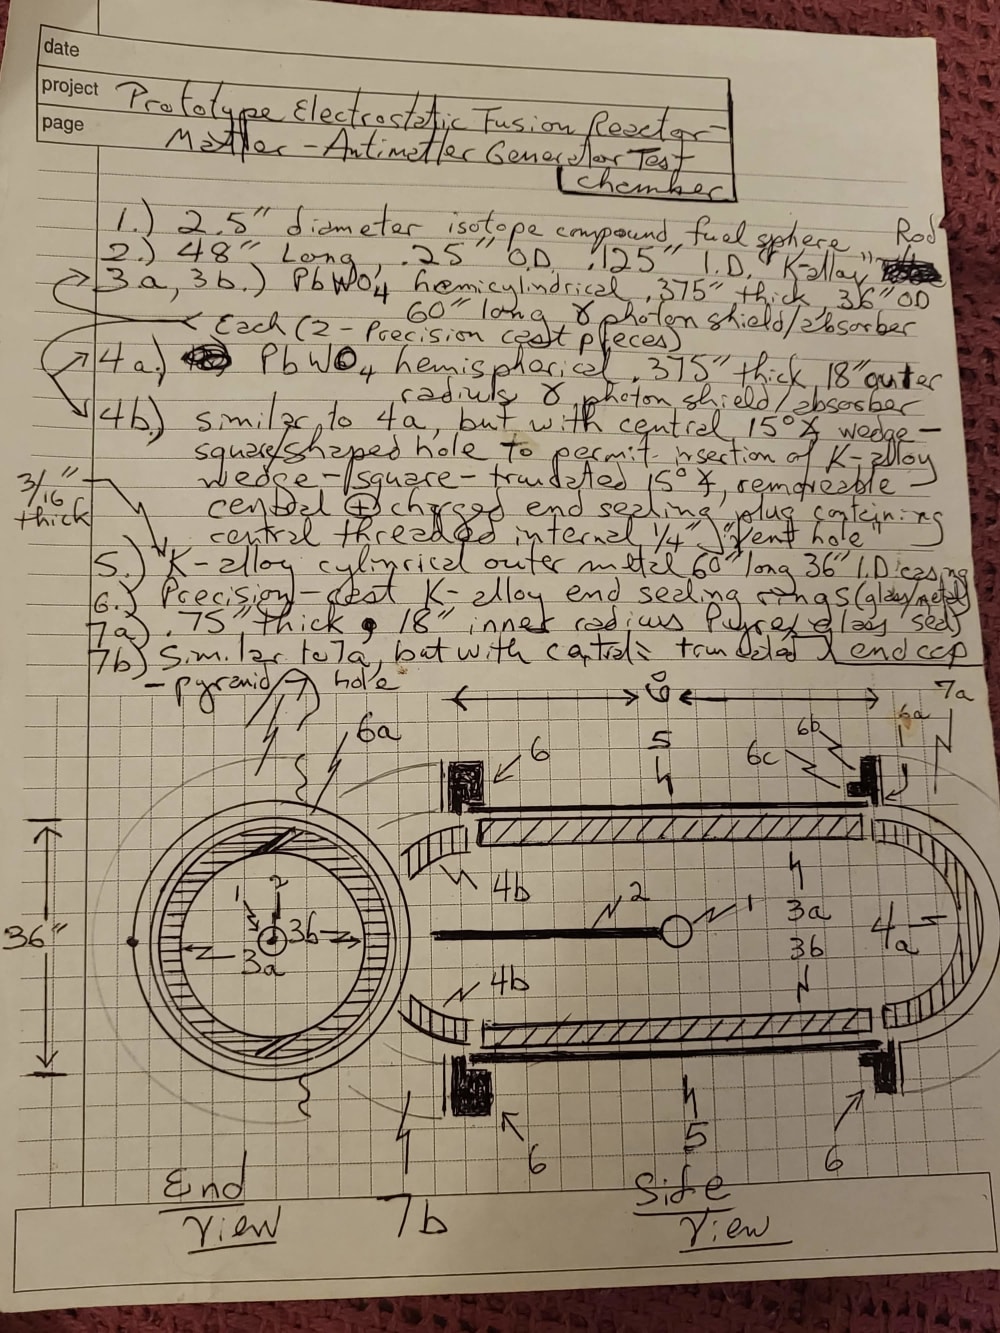 date
project Prototype Electrostatic Fusion Reactor-
page Matter-Antimatter Generator Test
chamber
1.) 2.5" diameter isotope compound fuel sphere
2.) 48" Long, .25" O.D. .125" I.D. "K-alloy" Rod
3a, 3b.) PbWO4 hemicylindrical .375" thick, 36" OD
60" long γ photon shield/absorber
Each (2-Precision cast pieces)
4a.) PbWO4 hemispherical .375" thick, 18" outer
radius γ photon shield/absorber
4b.) similar to 4a, but with central 15°∡ wedge-
square/shaped hole to permit insertion of K-alloy
wedge-/square-truncated 15°∡, removeable
central ⊕ charged end sealing plug containing
central threaded internal 1/4" "vent hole"
3/16" thick
5.) K-alloy cylindrical outer metal 60" long 36" I.D. casing
6.) Precision-cast K-alloy end sealing rings (glass/metal
seal)
7a) .75" thick, 18" inner radius Pyrex glass
end cap
7b) Similar to 7a, but with central truncated
-pyramid hole
6a
6
5
6c
6b
6a
7a
36"
1
2
3b
3a
4b
2
1
3a
3b
4a
4b
6
5
6
End
View
7b
Side
View